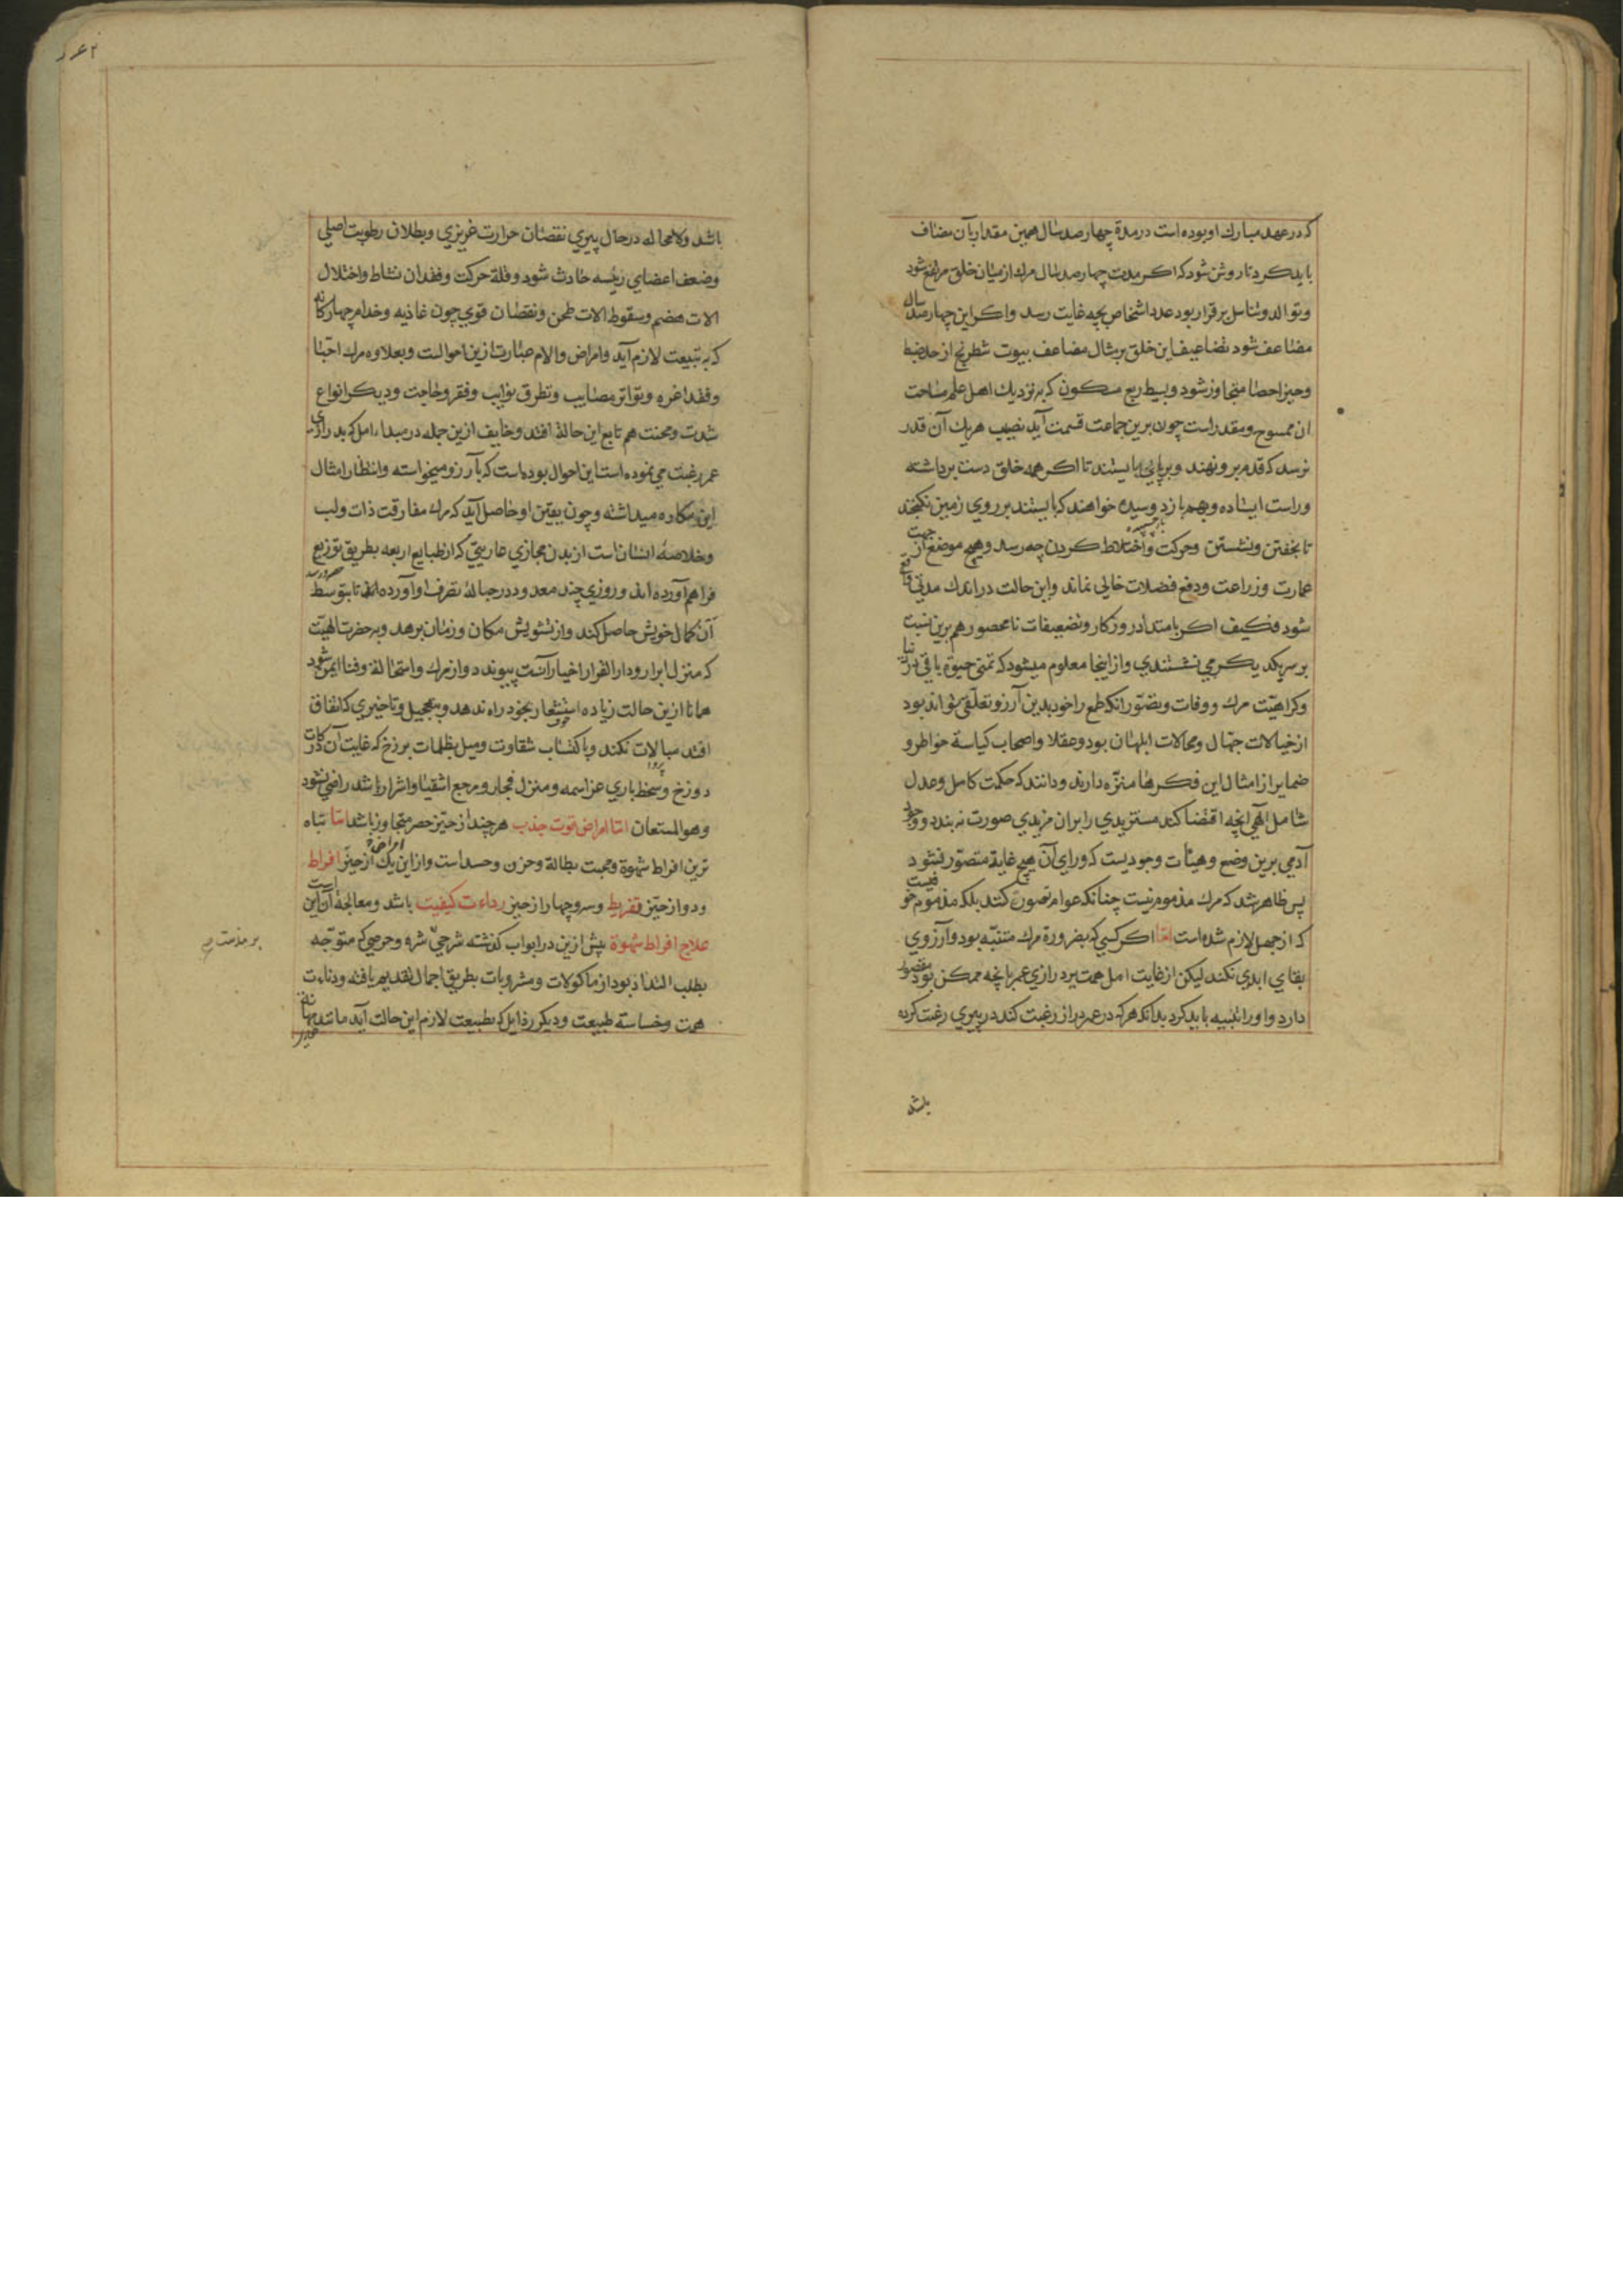 که در عهد مبارك او بوده است در مدة چهار صد سال همین مقدار بآن مضاف
باید کرد تا روشن شود که اکر مدت چهار صد سال مرك از میان خلق مرتفع شود
و توالد و تناسل بر قرار بود عدد اشخاص بچه غایت رسد و اکر این چهار صد سال
مضاعف شود تضاعیف این خلق بر مثال مضاعف بیوت شطرنج از حد ضبط
و حیز احصا متجاوز شود و بسیط ربع مسکون که بنزدیك اهل علم مساحت
ان ممسوح و مقدر است چون برین جماعت قسمت آید نصیب هر یك آن قدر
نرسد که قدم برو نهند و بر پای بایستند تا اکر همه خلق دست برداشته
و راست ایستاده و بهم باز دوسیده خواهند که بایستند بر روی زمین نکنجند
تا بخفتن و نشستن و حرکت و اختلاط کردن چه رسد و هیچ موضع از جهت
عمارت و زراعت و دفع فضلات خالی نماند و این حالت در اندك مدتی واقع
شود فکیف اکر بامتداد روزکار و تضعیفات نامحصور هم برین نسبت
بر سر یکدیکر می نشستندی و از اینجا معلوم میشود که تمنی حیوة باقی در دنیا
و کراهیت مرك و وفات و تصور انکه طمع را خود بدین آرزو تعلقی تواند بود
از خیالات جهال و محالات ابلهان بود و عقلا و اصحاب کیاسة خواطر و
ضمایر از امثال این فکرها منزه دارند و دانند که حکمت کامل و عدل
شامل الهی انچه اقتضا کند مستزیدی را بران مزیدی صورت نه بندد و وجود
آدمی برین وضع و هیئات وجودیست که ورای آن هیچ غایة متصور نشود
پس ظاهر شد که مرك مذموم نیست چنانکه عوام تصور کنند بلکه مذموم خوفیست
که از جهل لازم شده است اما اکر کسی که بضرورة مرك متنبه بود و آرزوی
بقای ابدی نکند لیکن از غایت امل همت بر درازی عمر بانچه ممکن بود مقصور
دارد و او را تنبیه باید کرد بدانکه هر که در عمر دراز رغبت کند در پیری رغبت کرده
باشد
باشد ولا محاله در حال پیری نقصان حرارت غریزی و بطلان رطوبت اصلی
و ضعف اعضای رئیسه حادث شود و قلة حرکت و فقدان نشاط و اختلال
الات هضم و سقوط الات طحن و نقصان قوی چون غاذیه و خدام چهارکانه
که بتبعیت لازم آید و امراض و الام عبارت ازین احوالست و بعلاوه مرك احبا
و فقد اعزه و تواتر مصایب و تطرق نوایب و فقر و حاجت و دیکر انواع
شدت و محنت هم تابع این حالة افتد و خایف ازین جمله در مبداء امل که بدرازی
عمر رغبت می نموده است این احوال بوده است که بآرزو میخواسته و انتظار امثال
این مکاره میداشته و چون یقین او حاصل آید که مرك مفارقت ذات و لب
و خلاصه انسانست از بدن مجازی عاریتی که از طبایع اربعه بطریق توزیع
فراهم آورده اند و روزی چند معدود در حباله تصرف او آورده اند تا بتوسط
آن کمال خویش حاصل کند و از تشویش مکان و زمان برهد و بحضرت الهیت
که منزل ابرار و دار القرار اخیار آنست پیوندد و از مرك و استحالة و فنا ایمن شود
همانا ازین حالت زیاده استشعار بخود راه ندهد و بتعجیل و تاخیری که اتفاق
افتد مبالات نکند و باکتساب شقاوت و میل بظلمات برزخ که غایت آن درکات
دوزخ و سخط باری عز اسمه و منزل فجار و مرجع اشقیا و اشرار باشد راضی نشود
وهو المستعان اما امراض قوت جذب هر چند از حیز حصر متجاوز باشد اما تباه
ترین افراط شهوة و محبت بطالة و حزن و حسد است و از این امراض یك از حیز افراط
و دو از حیز تفریط و سر و چهار از حیز رداءت کیفیت باشد و معالجة آن این است
علاج افراط شهوة پیش ازین در ابواب کذشته شرحی شره و حرصی که متوجه
بر مذمت
بطلب التذاذ بود از ماکولات و مشروبات بطریق اجمال تقدیم یافته و دناءت
همت و خساسة طبیعت و دیکر رذایل که بطبیعت لازم این حالت آید مانند مهانة